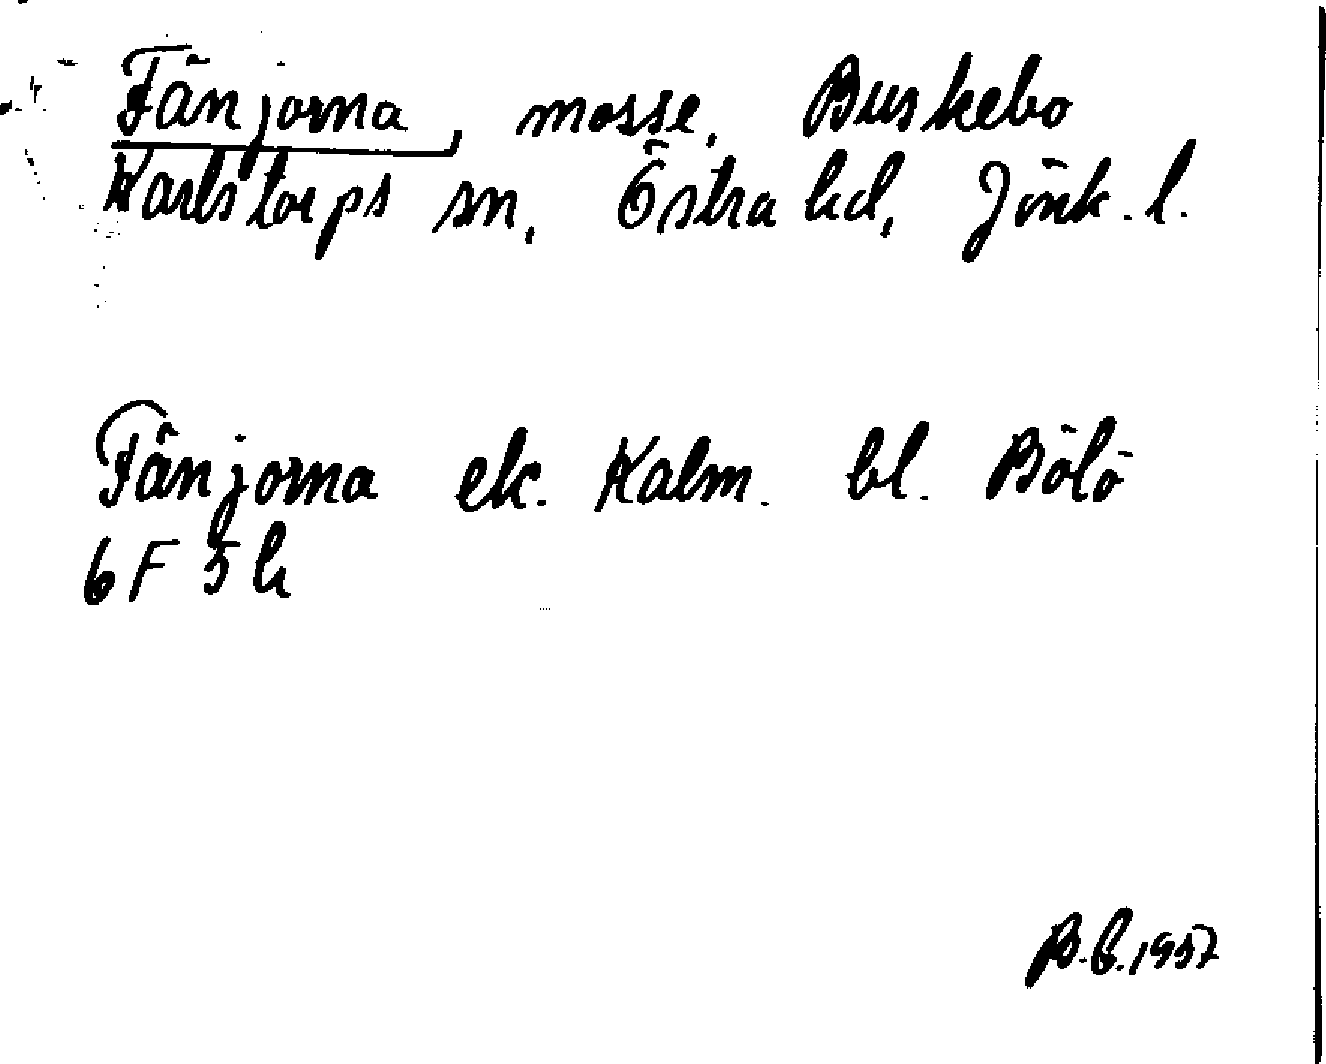 Fänjorna, mosse, Buskebo
Karlstorps sn, Östra hd, Jönk. l.
Fänjorna ek. Kalm. bl. Bölö
6 F 5 h
B.E. 1957